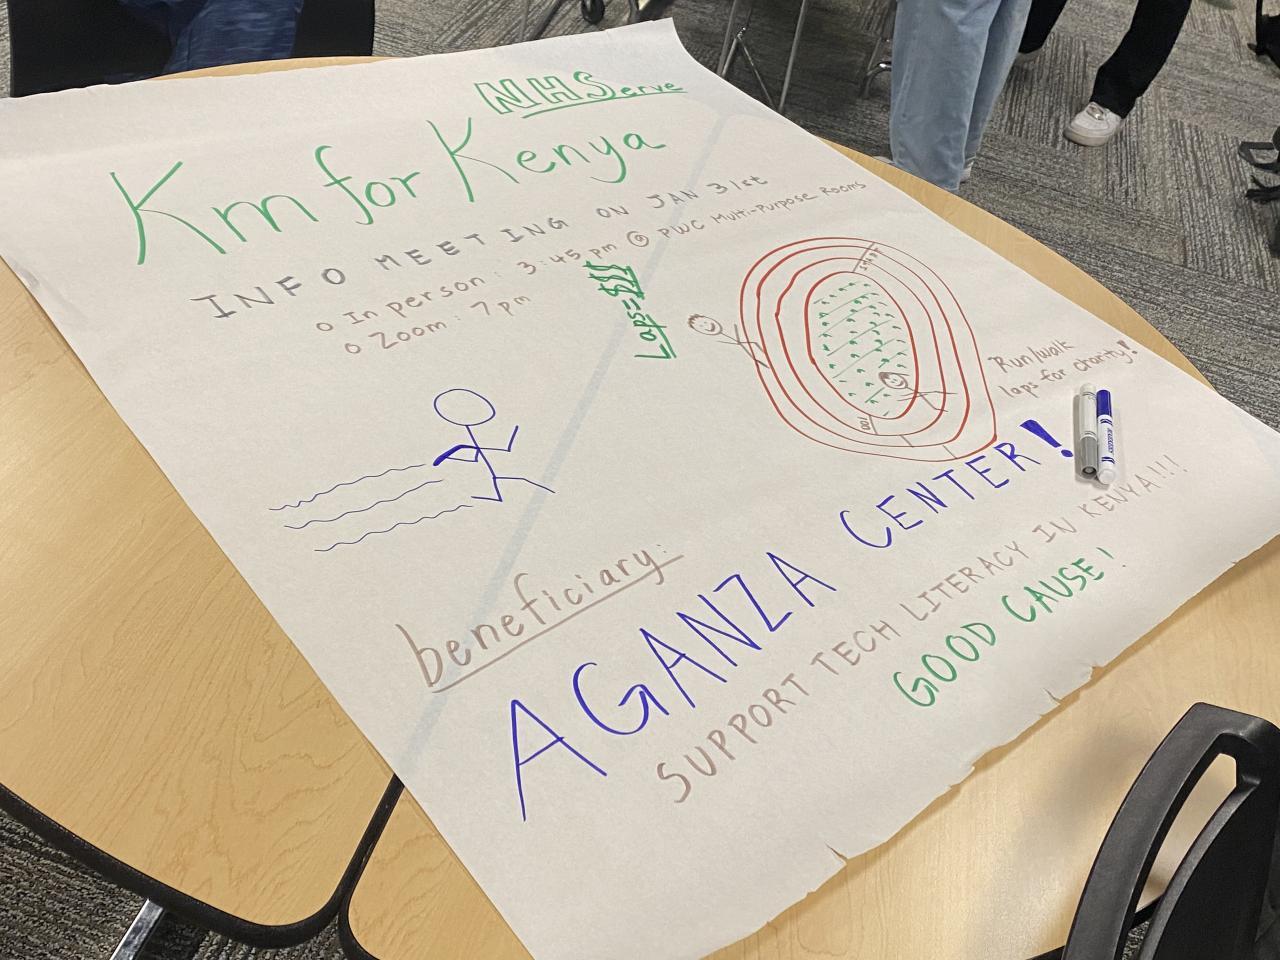 NHServe
Km for Kenya
INFO MEETING ON JAN 31st
o In person: 3:45 pm @ PWC Multi-Purpose Rooms
o Zoom: 7pm
Laps=$$$
START
100
Run/walk
laps for charity!
beneficiary:
AGANZA CENTER!
SUPPORT TECH LITERACY IN KENYA!!!
GOOD CAUSE!